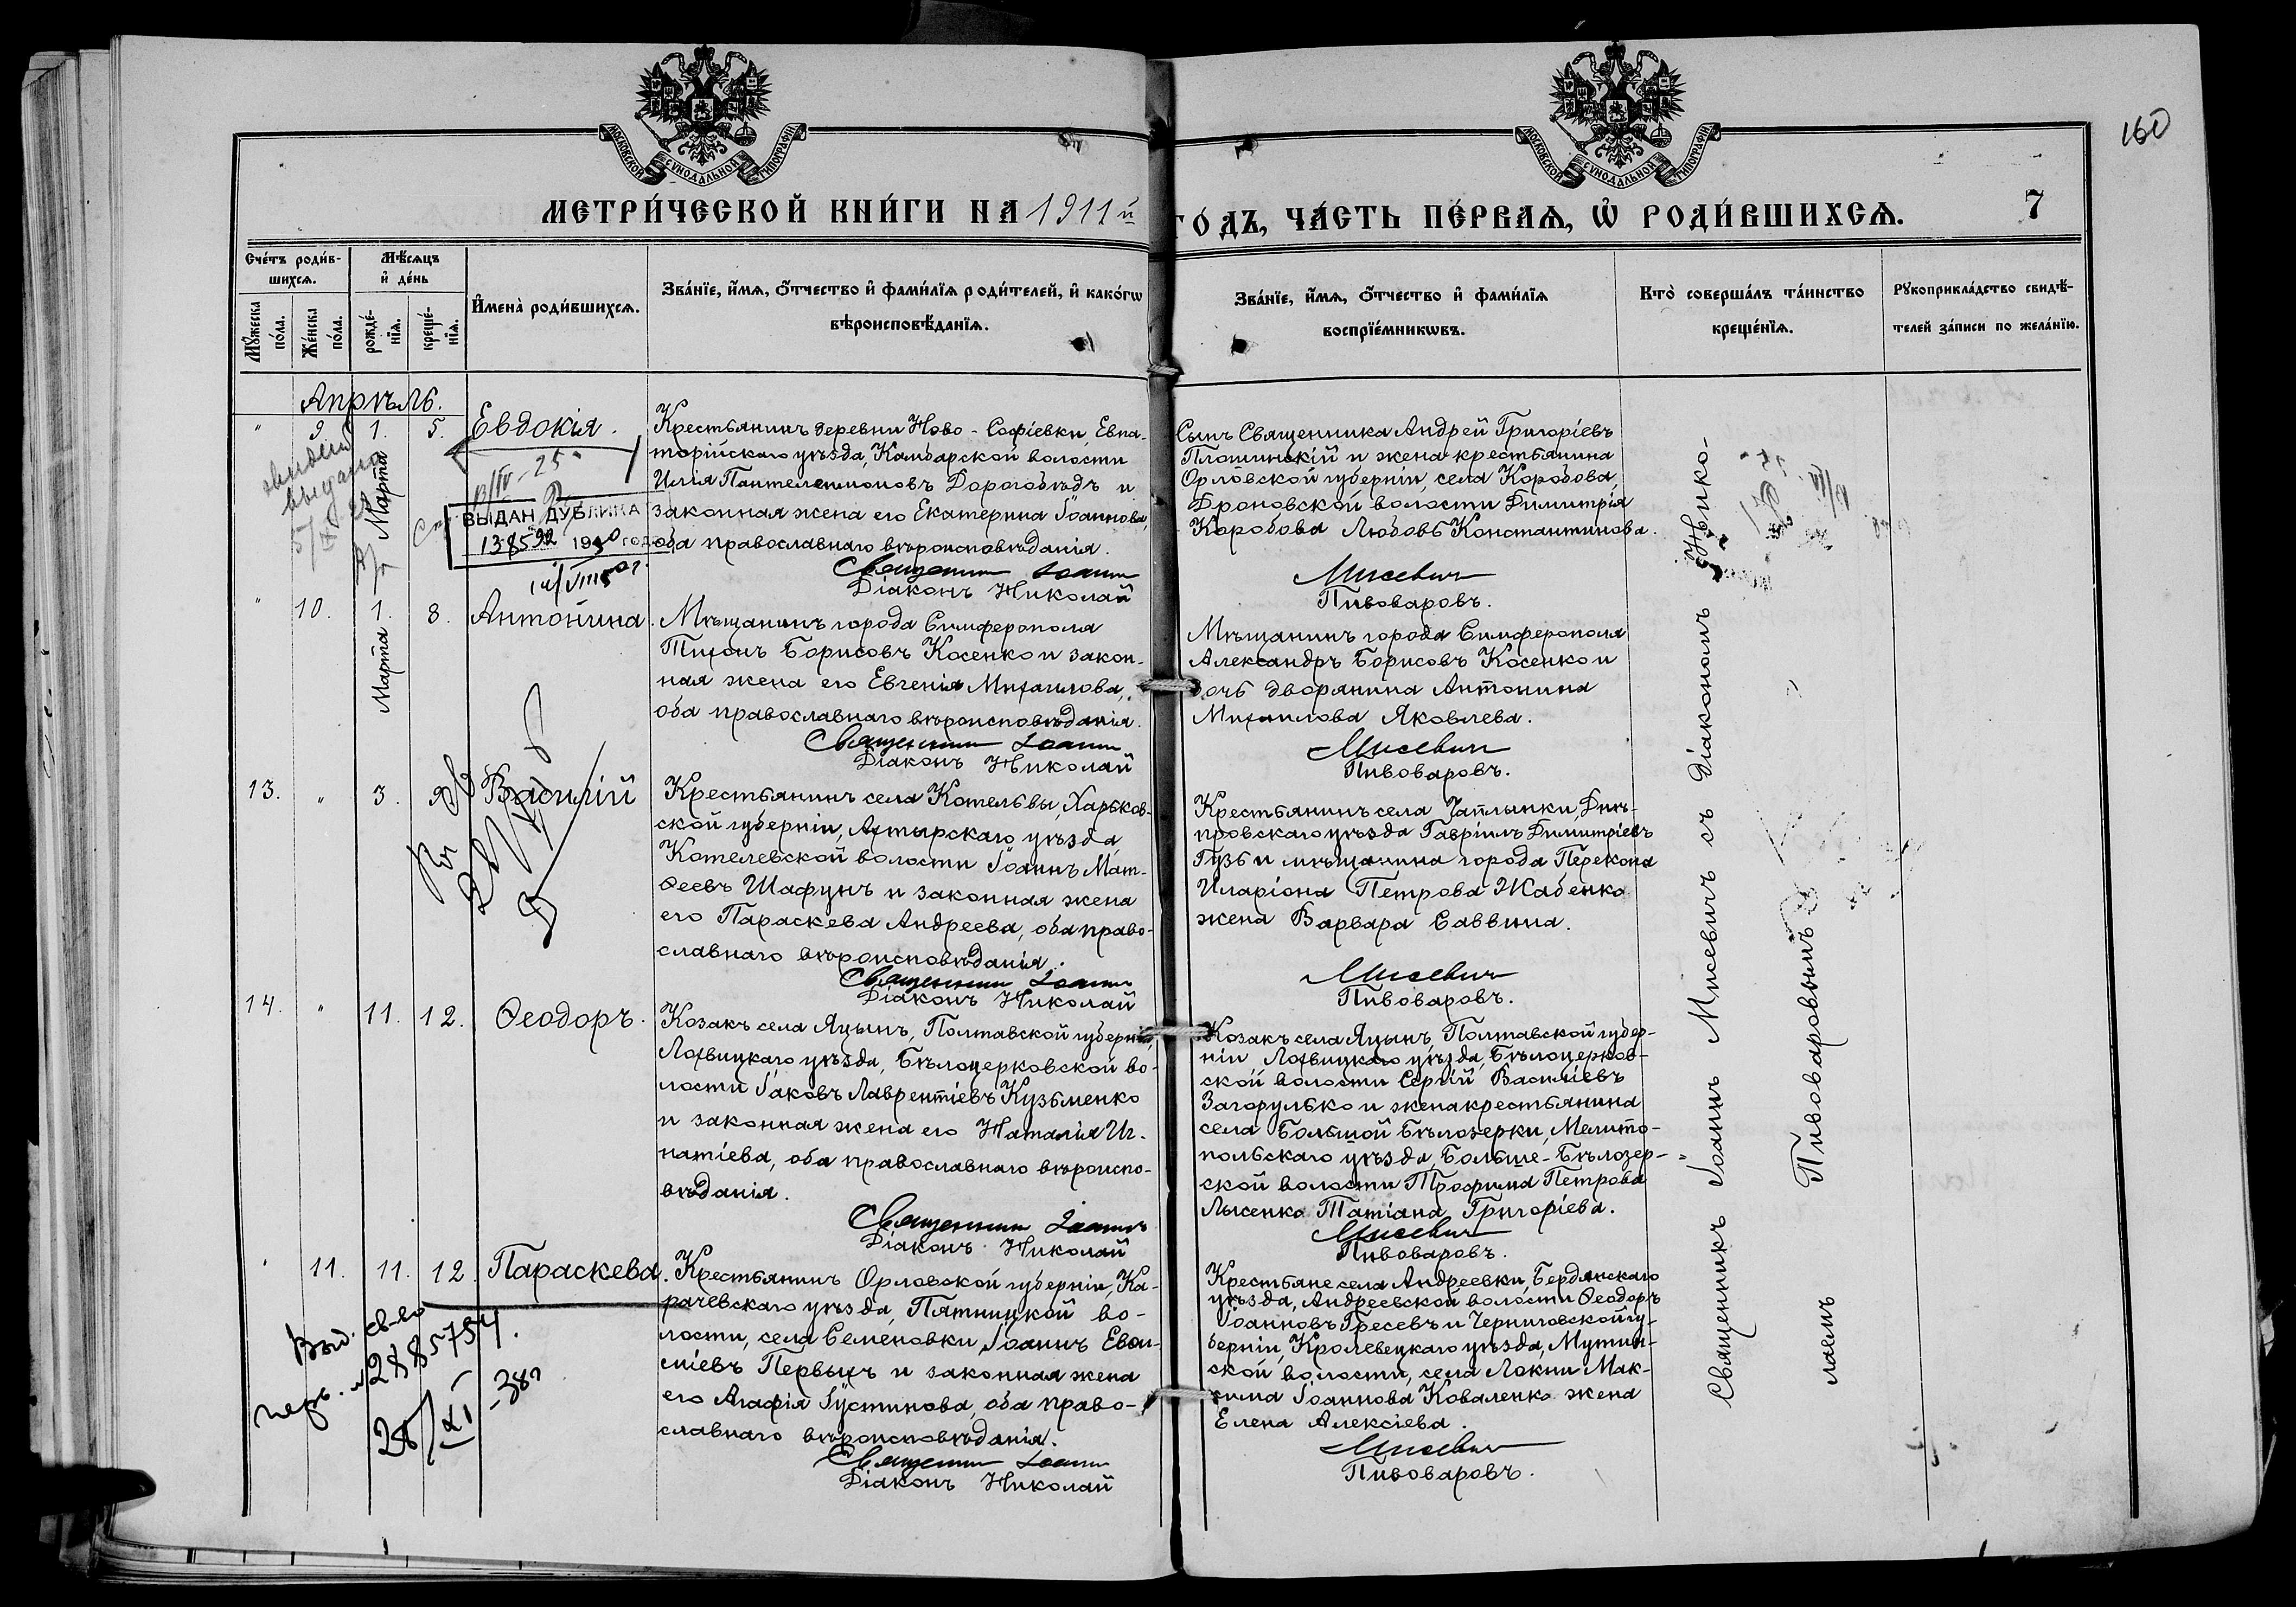 МОСКОВСКОЙ СѴНОДАЛЬНОЙ ТИПОГРАФІИ
МОСКОВСКОЙ СѴНОДАЛЬНОЙ ТИПОГРАФІИ
160
МЕТРИ́ЧЕСКОЙ КНИ́ГИ НА 1911й
ГО́ДЪ, ЧА́СТЬ ПЕ́РВАѦ, Ѡ҆ РОДИ́ВШИХСѦ.
7
Сче́тъ роди́в-
шихсѧ.
Мѣ́сѧцъ
и҆ де́нь
Мꙋ́жеска
по́ла.
Же́нска
по́ла.
рожде́-
нїѧ.
креще́-
нїѧ.
И҆мена̀ роди́вшихсѧ.
Зва́нїе, и҆́мѧ, ѻ҆́тчество и҆ фами́лїѧ роди́телей, и҆ како́гѡ
вѣроисповѣ́данїѧ.
Зва́нїе, и҆́мѧ, ѻ҆́тчество и҆ фами́лїѧ
воспрїе́мникѡвъ.
Кто̀ соверша́лъ та́инство
креще́нїѧ.
Рꙋкоприкла́дство свидѣ́-
телей за́писи по жела́нїю.
Апрѣль.
" 9. 1. Марта 5. Евдокія.
выдано
ВЫДАН ДУБЛИКА
138592 1950 годо
Крестьянинъ деревни Ново-Софіевки, Евпа-
торійскаго уѣзда, Камбарской волости
Илія Пантелеимоновъ Дорогобѣдъ и
законная жена его Екатерина Іоаннова,
оба православнаго вѣроисповѣданія.
Священникъ Іоаннъ
Діаконъ Николай
Сынъ Священника Андрей Григоріевъ
Плошинскій и жена крестьянина
Орловской губерніи, села Коробова,
Дроновской волости Димитрія
Коробова Любовь Константинова.
Мисевичъ
Пивоваровъ.
" 10. 1. Марта 8. Антонина.
Мѣщанинъ города Симферополя
Тихонъ Борисовъ Косенко и закон-
ная жена его Евгенія Михаилова,
оба православнаго вѣроисповѣданія.
Священникъ Іоаннъ
Діаконъ Николай
Мѣщанинъ города Симферополя
Александръ Борисовъ Косенко и
дочь дворянина Антонина
Михаилова Яковлева.
Мисевичъ
Пивоваровъ.
13. " 3. Василій
Крестьянинъ села Котельвы, Харьков-
ской губерніи, Ахтырскаго уѣзда
Котелевской волости Іоаннъ Мат-
ѳеевъ Шафунъ и законная жена
его Параскева Андреева, оба право-
славнаго вѣроисповѣданія.
Священникъ Іоаннъ
Діаконъ Николай
Крестьянинъ села Чаплынки, Днѣ-
провскаго уѣзда Гавріилъ Димитріевъ
Гузь и мѣщанина города Перекопа
Иларіона Петрова Жабенко
жена Варвара Саввина.
Мисевичъ
Пивоваровъ.
14. " 11. 12. Ѳеодоръ.
Козакъ села Яцынъ, Полтавской губерніи,
Лохвицкаго уѣзда, Бѣлоцерковской во-
лости Іаковъ Лаврентіевъ Кузьменко
и законная жена его Наталія Иг-
натіева, оба православнаго вѣроиспо-
вѣданія.
Священникъ Іоаннъ
Діаконъ Николай
Козакъ села Яцынъ, Полтавской губер-
ніи, Лохвицкаго уѣзда, Бѣлоцерков-
ской волости Сергій Василіевъ
Загорулько и жена крестьянина
села Большой Бѣлозерки, Мелито-
польскаго уѣзда, Больше-Бѣлозер-
ской волости Трофима Петрова
Лысенко Татіана Григоріева.
Мисевичъ
Пивоваровъ.
" 11. 11. 12. Параскева.
Выд. св-во
2885754.
Крестьянинъ Орловской губерніи, Ка-
рачевскаго уѣзда, Пятницкой во-
лости, села Семеновки, Іоаннъ Евѳи-
міевъ Первыхъ и законная жена
его Агафія Іустинова, оба право-
славнаго вѣроисповѣданія.
Священникъ Іоаннъ
Діаконъ Николай
Крестьяне села Андреевки, Бердянскаго
уѣзда, Андреевской волости Ѳеодоръ
Іоанновъ Гресевъ и Черниговской гу-
берніи, Кролевецкаго уѣзда, Мутин-
ской волости, села Локни Мак-
сима Іоаннова Коваленко жена
Елена Алексіева.
Мисевичъ
Пивоваровъ.
Священникъ Іоаннъ Мисевичъ съ діакономъ Нико-
лаемъ Пивоваровымъ